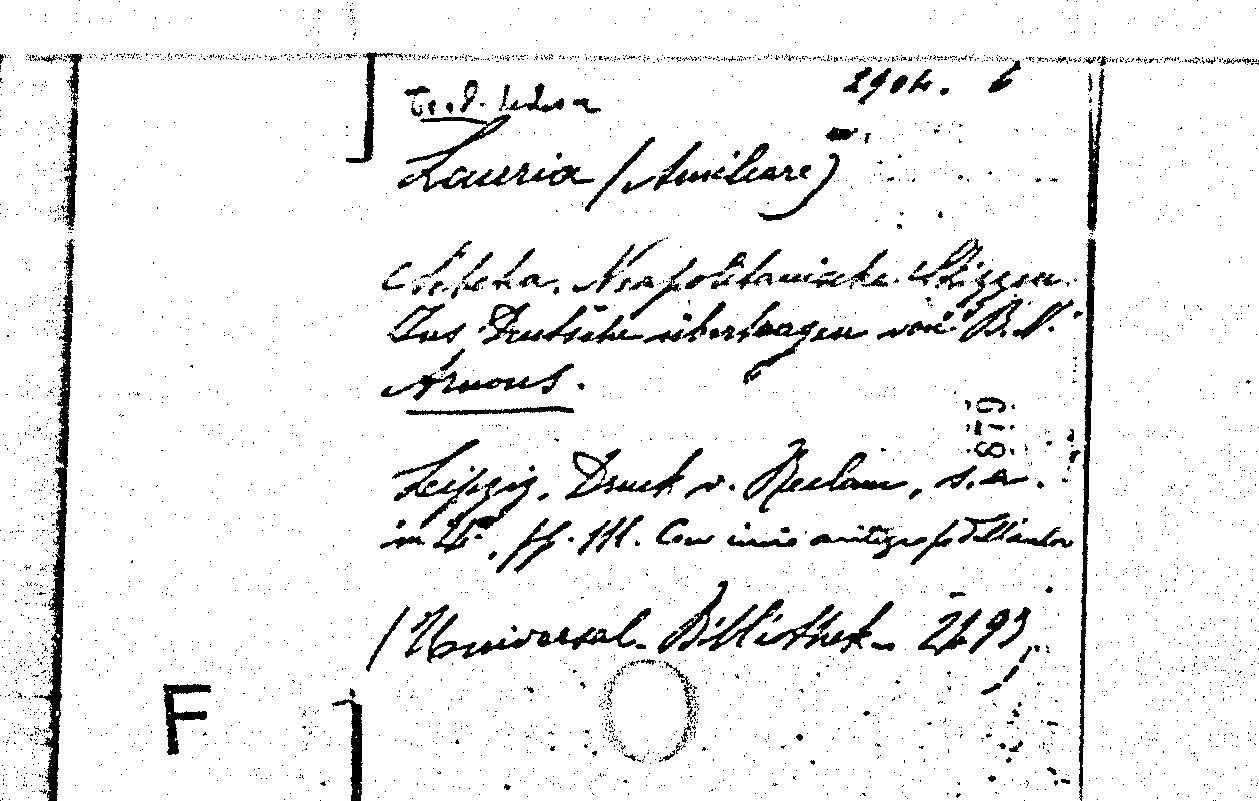 tr. d. tedesca
2904. 6
Lauria (Amilcare)
Sebetia. Neapolitanische Skizzen.
Ins Deutsche übertragen von B. V.
Arnous.
879
Leipzig, Druck v. Reclam, s.a.
in 4°, pp. 111. Con invio autografo dell'autor
(Universal-Bibliothek - 2493)
F